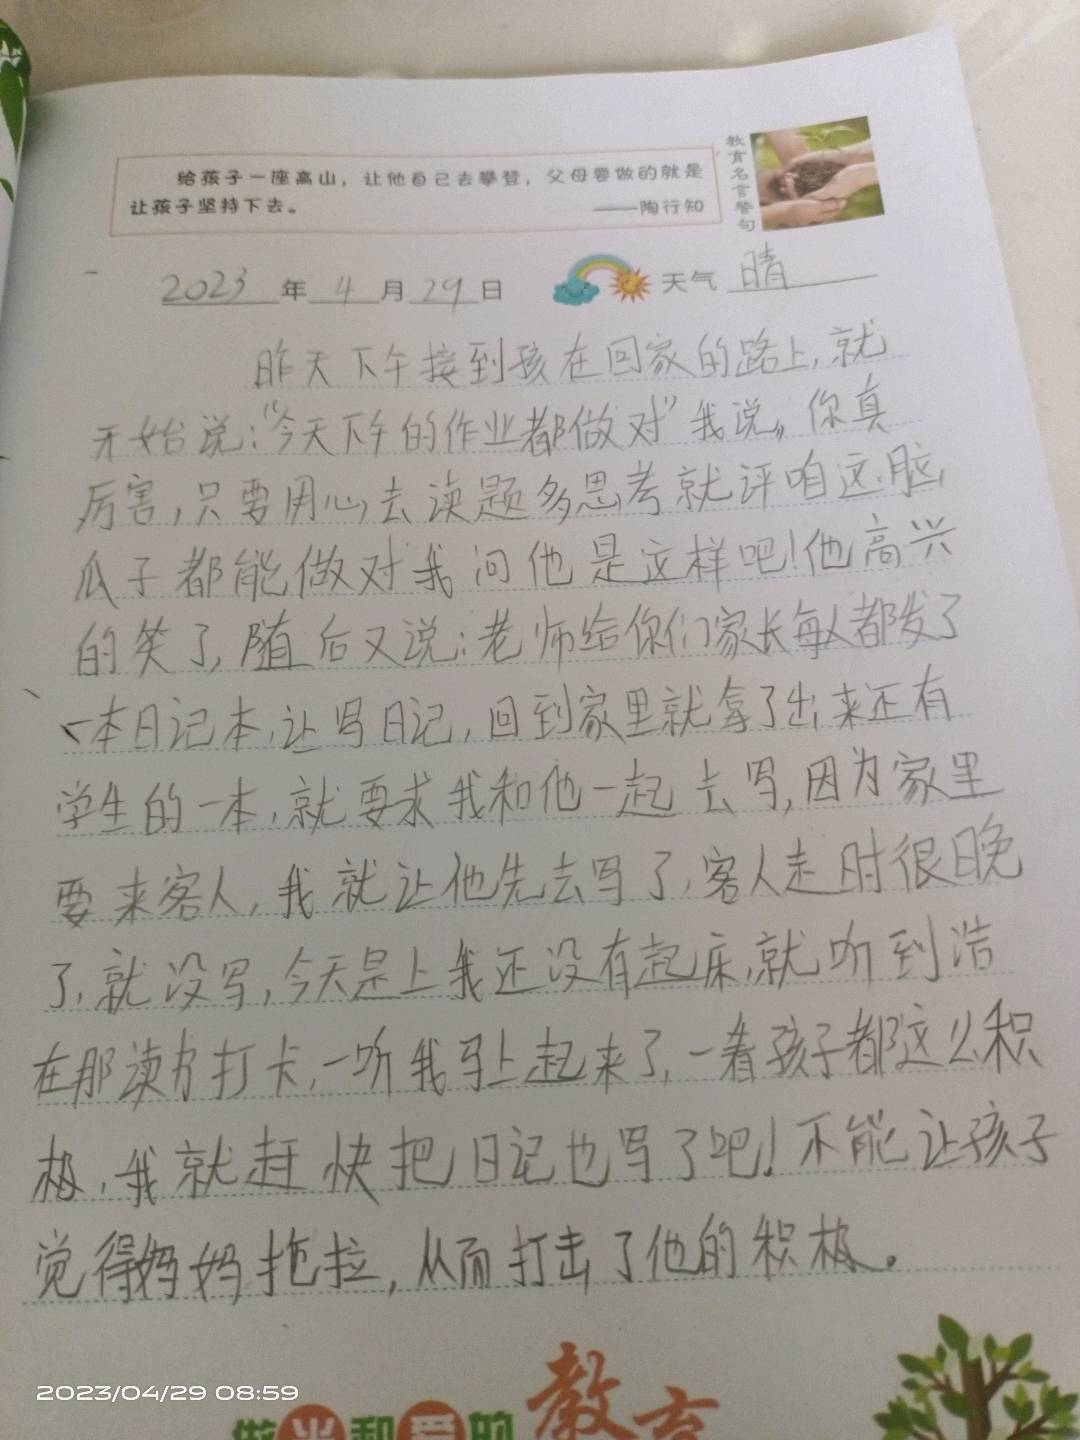 给孩子一座高山，让他自己去攀登，父母要做的就是
让孩子坚持下去。 ——陶行知
教育名言警句
2023年4月29日 天气 晴
昨天下午接到孩在回家的路上,就
开始说:“今天下午的作业都做对”我说,你真
厉害,只要用心去读题多思考就评咱这脑
瓜子都能做对我问他是这样吧!他高兴
的笑了,随后又说:老师给你们家长每人都发了
一本日记本,让写日记,回到家里就拿了出来还有
学生的一本,就要求我和他一起去写,因为家里
要来客人,我就让他先去写了,客人走时很晚
了,就没写,今天是上我还没有起床,就听到浩
在那读打卡,一听我马上起来了,一看孩子都这么积
极,我就赶快把日记也写了吧!不能让孩子
觉得妈妈拖拉,从而打击了他的积极。
2023/04/29 08:59
做光和爱的教育